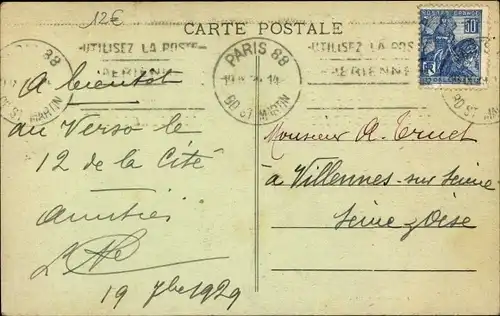 12€
CARTE POSTALE
UTILISEZ LA POSTE
AERIENNE
PARIS 88
BD ST MARTIN
UTILISEZ LA POS
AERIENNE
BD ST MARTIN
A bientôt
au Verso le
12 de la Cité
Amitiés
19 7bre 1929
Monsieur A. Truet
à Villennes-sur Seine
Seine & Oise